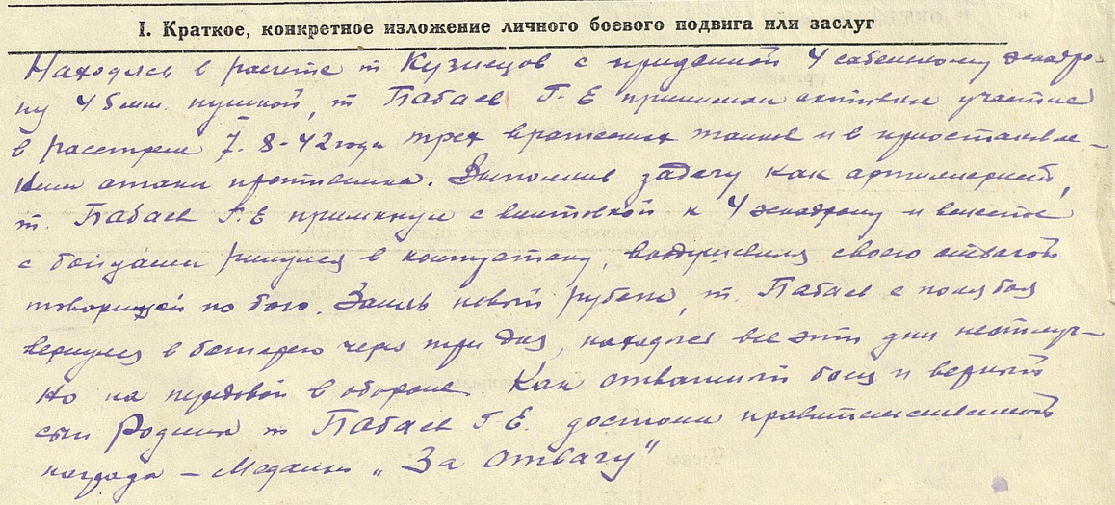 I. Краткое, конкретное изложение личного боевого подвига или заслуг
Находясь в расчете т Кузнецов с приданной 4 сабельному эскадро-
ну 45мм. пушкой, т Бабаев Г. Е принимал активное участие
в расстреле 7. 8-42 года трех вражеских танков и в приостановле-
нии атаки противника. Выполнив задачу как артиллерист,
т. Бабаев Г. Е примкнул с винтовкой к 4 эскадрону и вместе
с бойцами ринулся в контратаку, воодушевляя своею отвагой
товарищей по бою. Заняв новый рубеж, т. Бабаев с поля боя
вернулся в батарею через три дня, находясь все эти дни неотлуч-
но на передовой в обороне. Как отважный боец и верный
сын Родины т Бабаев Г Е. достоин правительственной
награды – Медали „За отвагу"